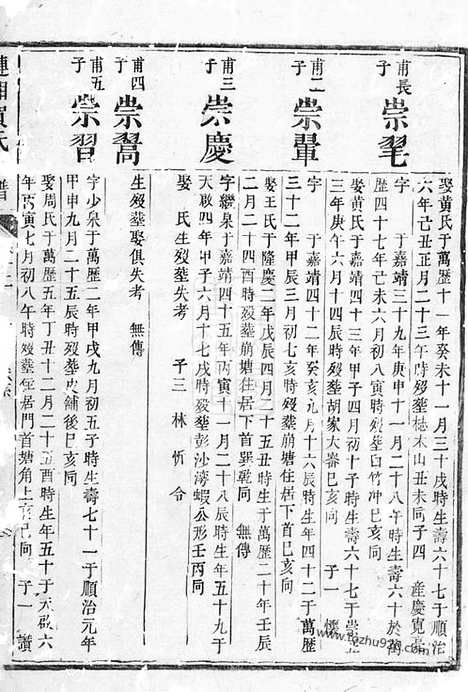 甫長子 崇毣
字 于嘉靖三十九年庚申十一月二十八午時生壽六十於萬
歷四十七年己未六月初八寅時歿葬白竹冲巳亥同
娶黃氏于萬歷十一年癸未十一月三十戌時生壽六十七于順治
六年己丑正月二十三午時歿葬 木山丑未同子四 產慶寬
甫二子 崇翬
字 于嘉靖四十二年癸亥 月十六辰時生年四十二于萬歷
三十二年甲辰三月初七亥時歿葬崩塘住居下首巳亥同
娶黃氏于嘉靖四十三年甲子四月初十子時生壽六十七于崇
三年庚午六月十四時歿葬胡家大 巳亥同 子一
甫三子 崇慶
字繼泉于嘉靖四十五年丙寅十一月二十八辰時生年五十九于
天啟四年甲子六月十七戌時歿葬彭沙灣蝦公形壬丙同
娶王氏于隆慶二年戊辰四月二十五丑時生于萬歷二十年壬辰
二月二十四酉時歿葬崩塘住居下首巽乾同 無傳
娶 氏生歿葬失考 子三 林 忻 令
甫四子 崇鶱
生歿葬娶俱失考 無傳
甫五子 崇習
字少泉于萬歷二年甲戌九月初五子時生壽七十一于順治元年
甲申九月二十五辰時歿葬史鋪後巳亥同
娶周氏于萬歷五年丁丑十二月二十五酉時生年五十于天啟六
年丙寅七月初八午時歿葬住居門首塘角上亥巳同 子一 讚